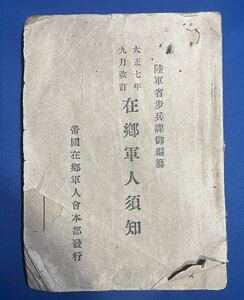 陸軍省歩兵課御編纂
大正七年
九月改訂
在郷軍人須知
帝國在郷軍人會本部發行